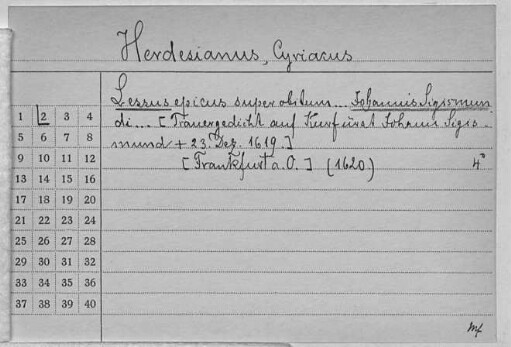 Herdesianus, Cyriacus
Lessus epicus super obitum... Johannis Sigismun
di... [Trauergedicht auf Kurfürst Johann Sigis-
mund + 23. Dez. 1619.]
[Frankfurt a. O.] (1620) 4°
1 2 3 4
5 6 7 8
9 10 11 12
13 14 15 16
17 18 19 20
21 22 23 24
25 26 27 28
29 30 31 32
33 34 35 36
37 38 39 40